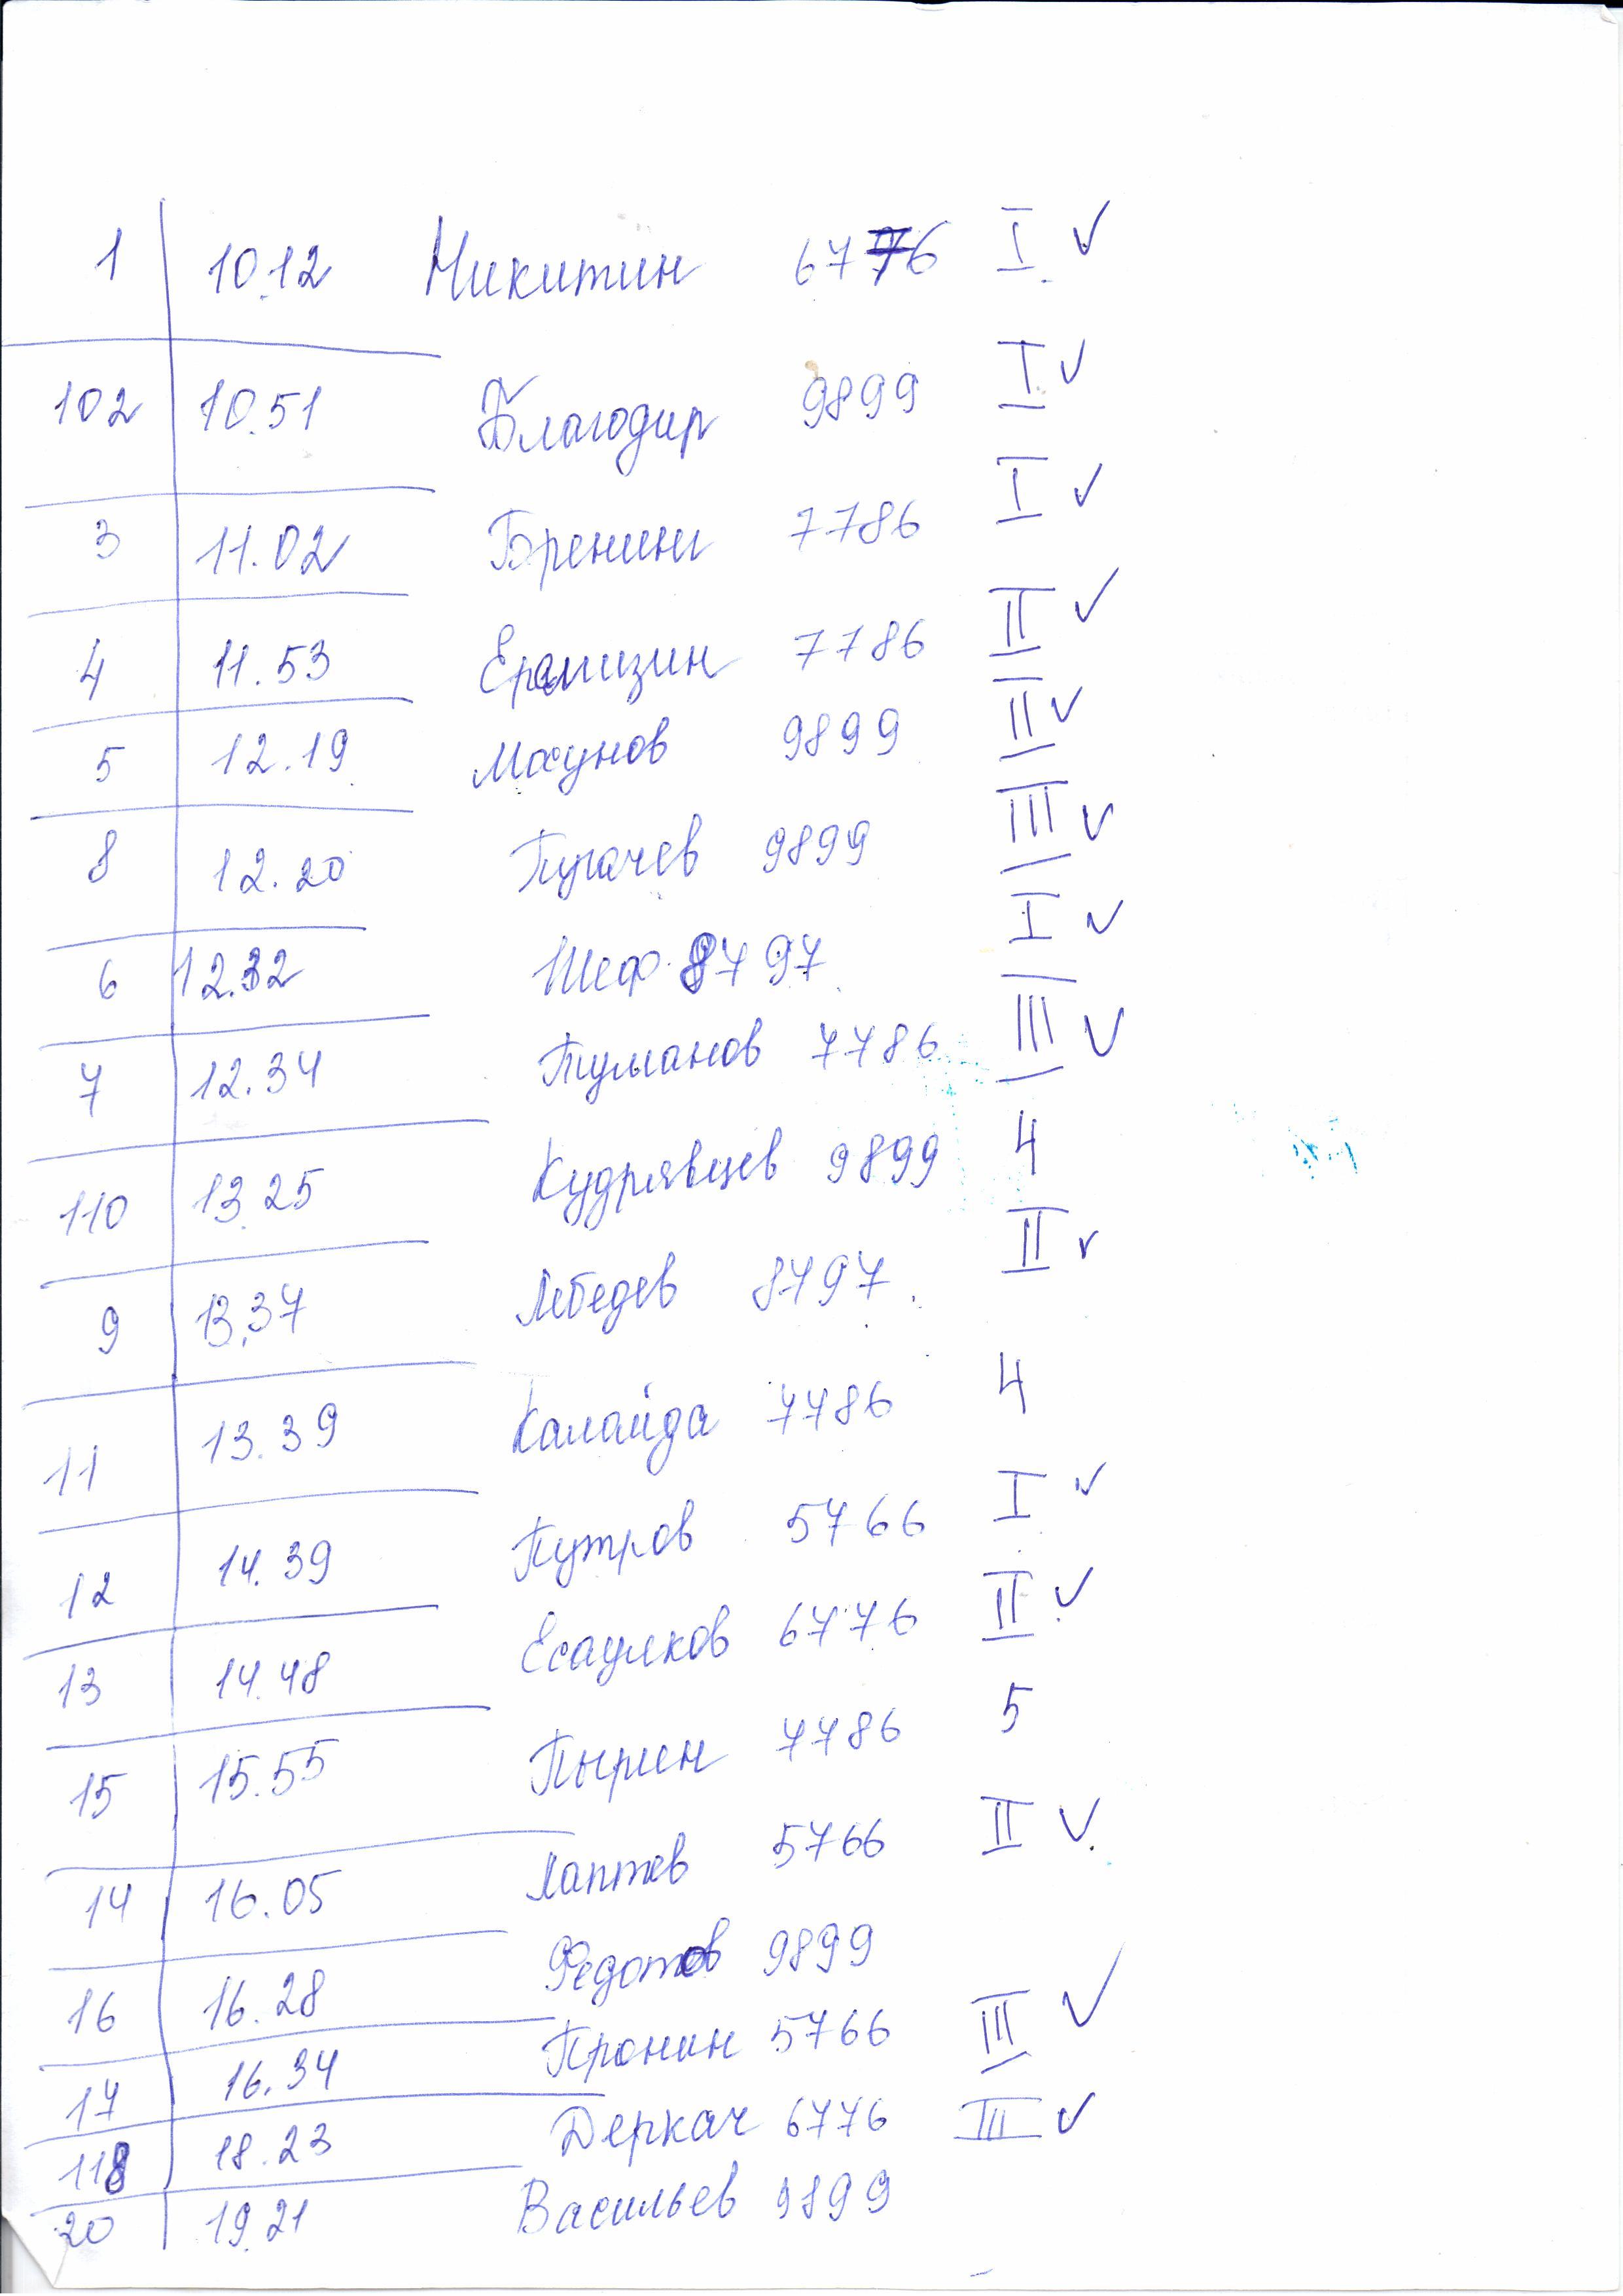 1 10.12 Никитин 6776 I ✓
102 10.51 Благодир 9899 I ✓
3 11.02 Бренинг 7786 I ✓
4 11.53 Ерамизин 7786 II ✓
5 12.19 Мохунов 9899 II ✓
8 12.20 Пугачев 9899 III ✓
6 12.32 Шеф 8797 I ✓
7 12.34 Туманов 7786 III ✓
110 13.25 Кудрявцев 9899 4
9 13.37 Лебедев 8797 II ✓
11 13.39 Калайда 7786 4
12 14.39 Путров 5766 I ✓
13 14.48 Есаулков 6776 II ✓
15 15.55 Пырин 7786 5
14 16.05 Лаптев 5766 II ✓
16 16.28 Федотов 9899
17 16.34 Пронин 5766 III ✓
118 18.23 Деркач 6776 III ✓
20 19.21 Васильев 9899